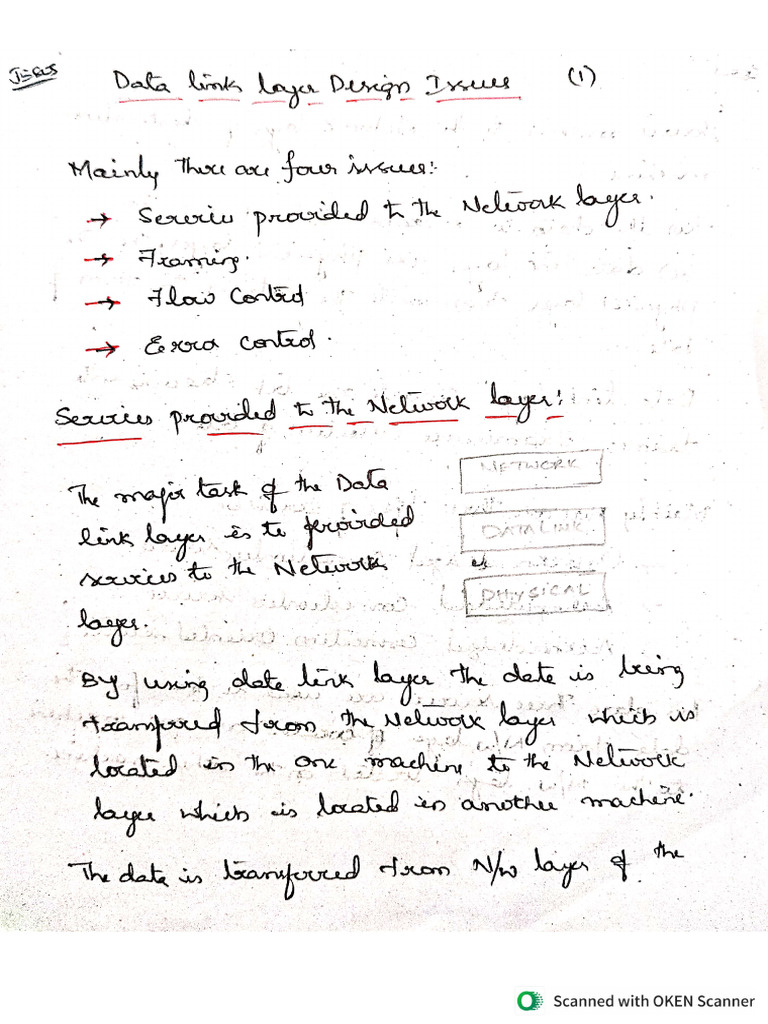 JESUS
Data link layer Design Issues (1)
Mainly there are four issues:
→ Service provided to the Network layer.
→ Framing.
→ Flow Control
→ Error control.
Services provided to the Network layer:
The major task of the Data
link layer is to provided
services to the Network
layer.
NETWORK
DATALINK
PHYSICAL
By using date link layer the date is being
transfrred from the Network layer which is
located in the one machine to the Network
layer which is located in another machine.
The date is transferred from N/w layer of the
Scanned with OKEN Scanner